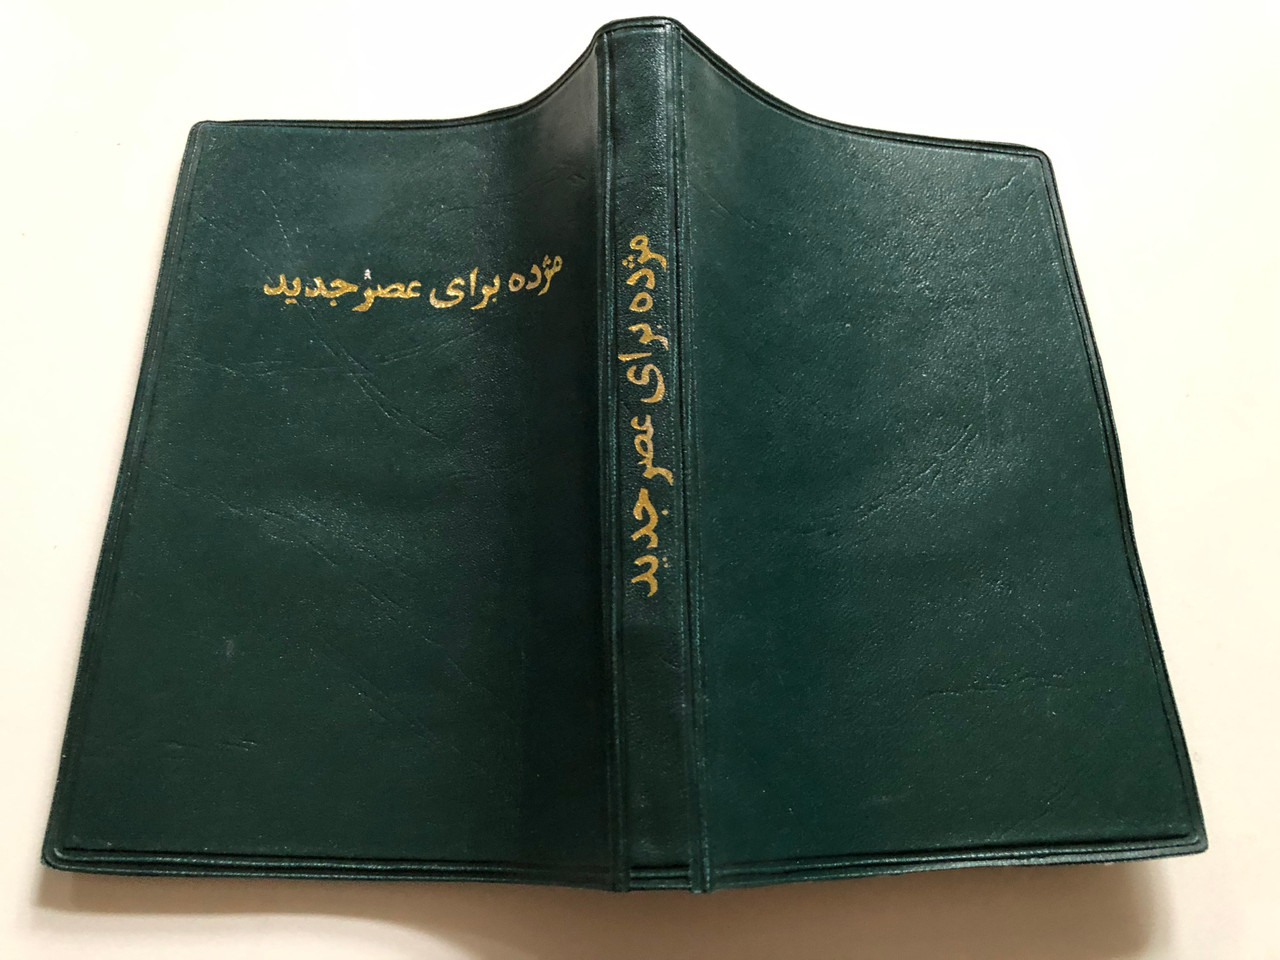 مژده برای عصر جدید
مژده برای عصر جدید